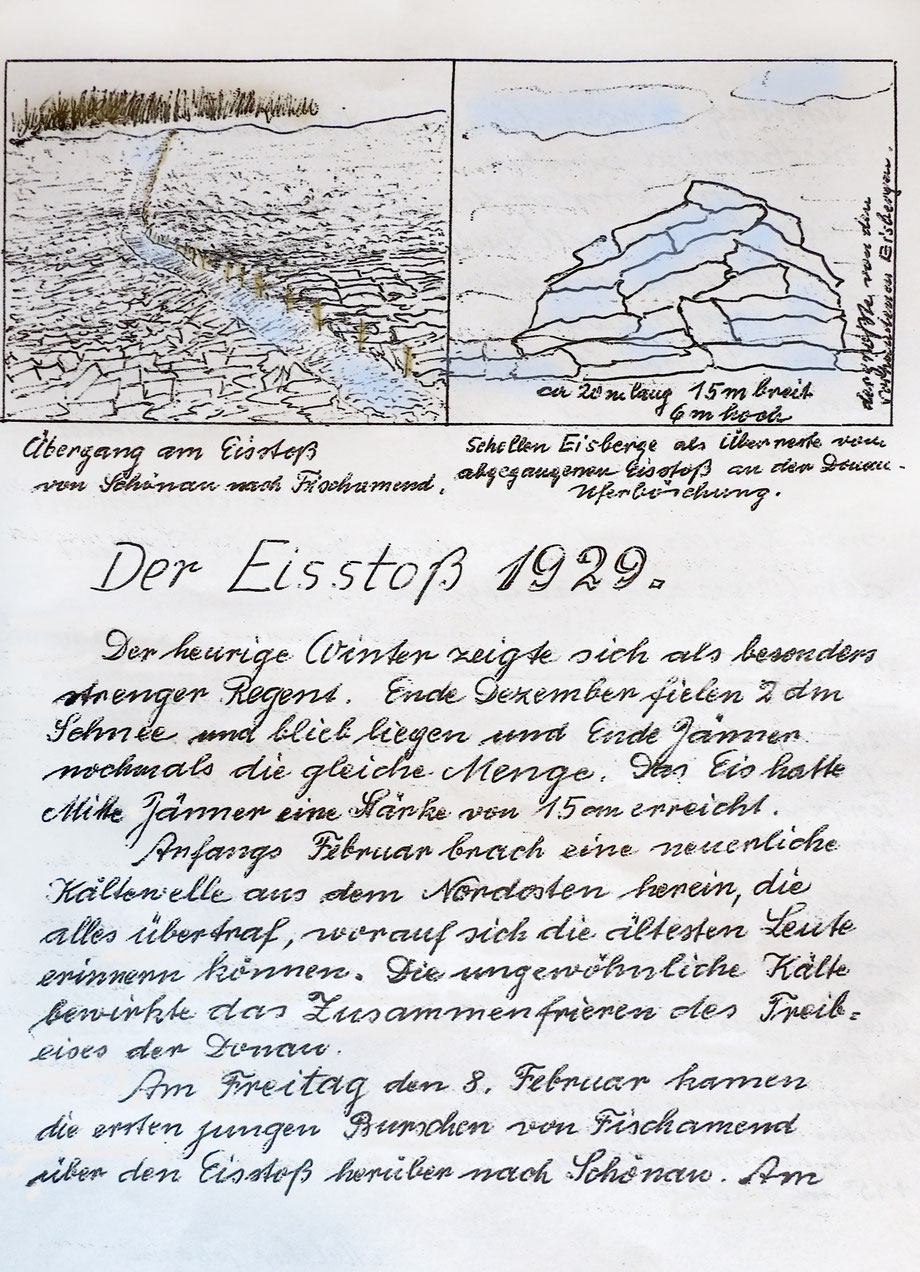 ca 20 m lang 15 m breit
6 m hoch
der größte von den
vorhandenen Eisbergen.
Übergang am Eisstoß
von Schönau nach Fischamend.
Schollen Eisberge als Überreste vom
abgegangenen Eisstoß an der Donau-
Uferböschung.
Der Eisstoß 1929.
Der heurige Winter zeigte sich als besonders
strenger Regent. Ende Dezember fielen 2 dm
Schnee und blieb liegen und Ende Jänner
nochmals die gleiche Menge. Das Eis hatte
Mitte Jänner eine Stärke von 15 cm erreicht.
Anfangs Februar brach eine neuerliche
Kältewelle aus dem Nordosten herein, die
alles übertraf, worauf sich die ältesten Leute
erinnern können. Die ungewöhnliche Kälte
bewirkte das Zusammenfrieren des Treib=
eises der Donau.
Am Freitag den 8. Februar kamen
die ersten jungen Burschen von Fischamend
über den Eisstoß herüber nach Schönau. Am